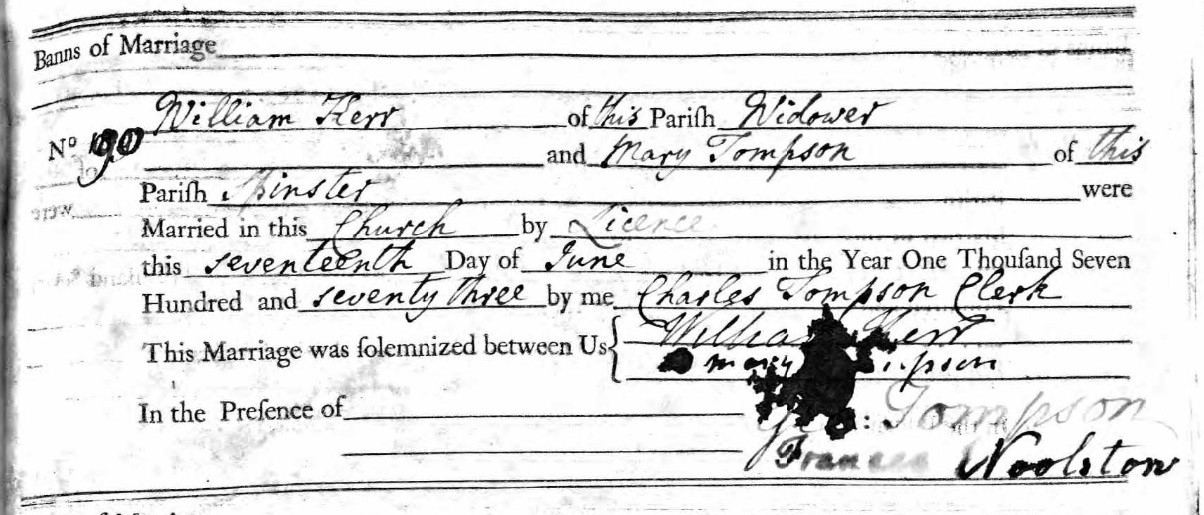 Banns of Marriage
William Kerr of this Pariſh Widower
Nº 190 and Mary Tompson of this
Pariſh Spinster were
Married in this Church by Licence
this seventeenth Day of June in the Year One Thouſand Seven
Hundred and seventy three by me Charles Tompson Clerk
This Marriage was ſolemnized between Us { William Kerr
Mary
In the Preſence of : Tompson
Frances Woolston